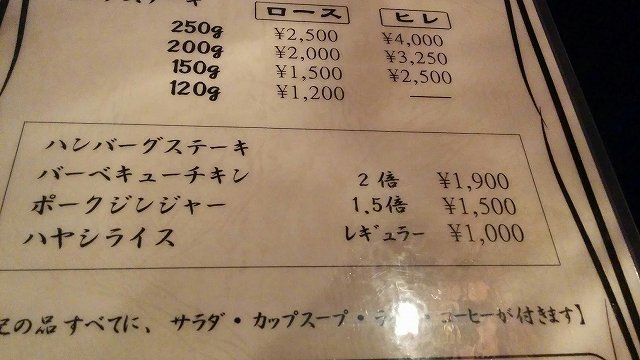 ステーキ
ロース ヒレ
250g ¥2,500 ¥4,000
200g ¥2,000 ¥3,250
150g ¥1,500 ¥2,500
120g ¥1,200 ——
ハンバーグステーキ
バーベキューチキン 2倍 ¥1,900
ポークジンジャー 1.5倍 ¥1,500
ハヤシライス レギュラー ¥1,000
記の品すべてに、サラダ・カップスープ・ ・コーヒーが付きます】